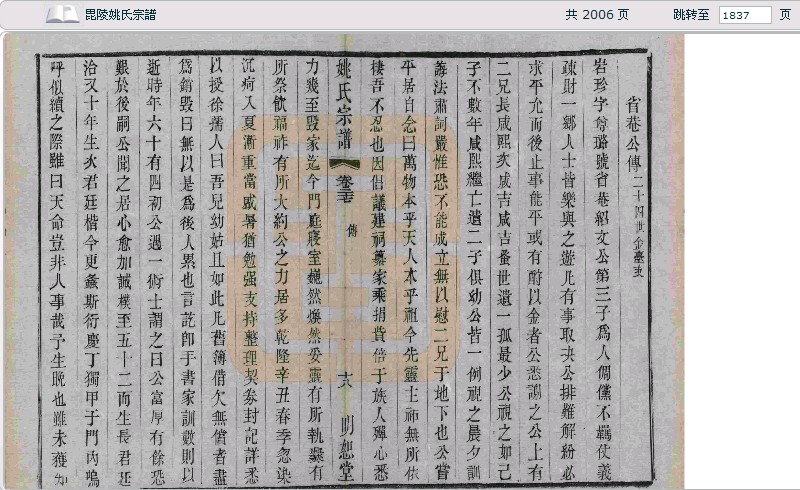 毘陵姚氏宗譜
共 2006 页
跳转至 1837 页
省菴公傳二十四世金臺支
岩珍字尊璐號省菴紹文公第三子爲人倜儻不羈使義
疎財一鄉人士皆樂與之遊凡有事取決公排難解紛必
求平允而後止事能平或有酧以金者公悉謝之公上有
二兄長咸熙次咸吉咸吉蚤世遺一孤最少公視之如己
子不數年咸熙繼亡遺二子俱幼公皆一例視之晨夕訓
誨法肅詞嚴惟恐不能成立無以慰二兄于地下也公嘗
平居自念曰萬物本乎天人本乎祖今先靈主祏無所依
棲吾不忍也因倡議建祠纂家乘捐貲倍于族人殫心悉
姚氏宗譜 卷三 傳 十六 明恕堂
力幾至毀家迄今門庭寢室巍然煥然妥靈有所執爨有
所祭飲福祚有所大約公之力居多乾隆辛丑春季忽染
沉疴入夏漸重當盛暑猶勉强支持整理契劵封記詳悉
以授徐孺人曰吾兒幼姑且如此凡舊簿借欠無償者盡
爲銷毀曰無以是爲後人累也言訖卽手書家訓數則以
逝時年六十有四初公遇一術士謂之曰公富厚有餘恐
艱於後嗣公聞之居心愈加誠樸至五十二而生長君廷
洽又十年生次君廷楷今更螽斯衍慶丁獨甲于門內嗚
呼似續之際雖曰天命豈非人事哉予生晚也雖未獲